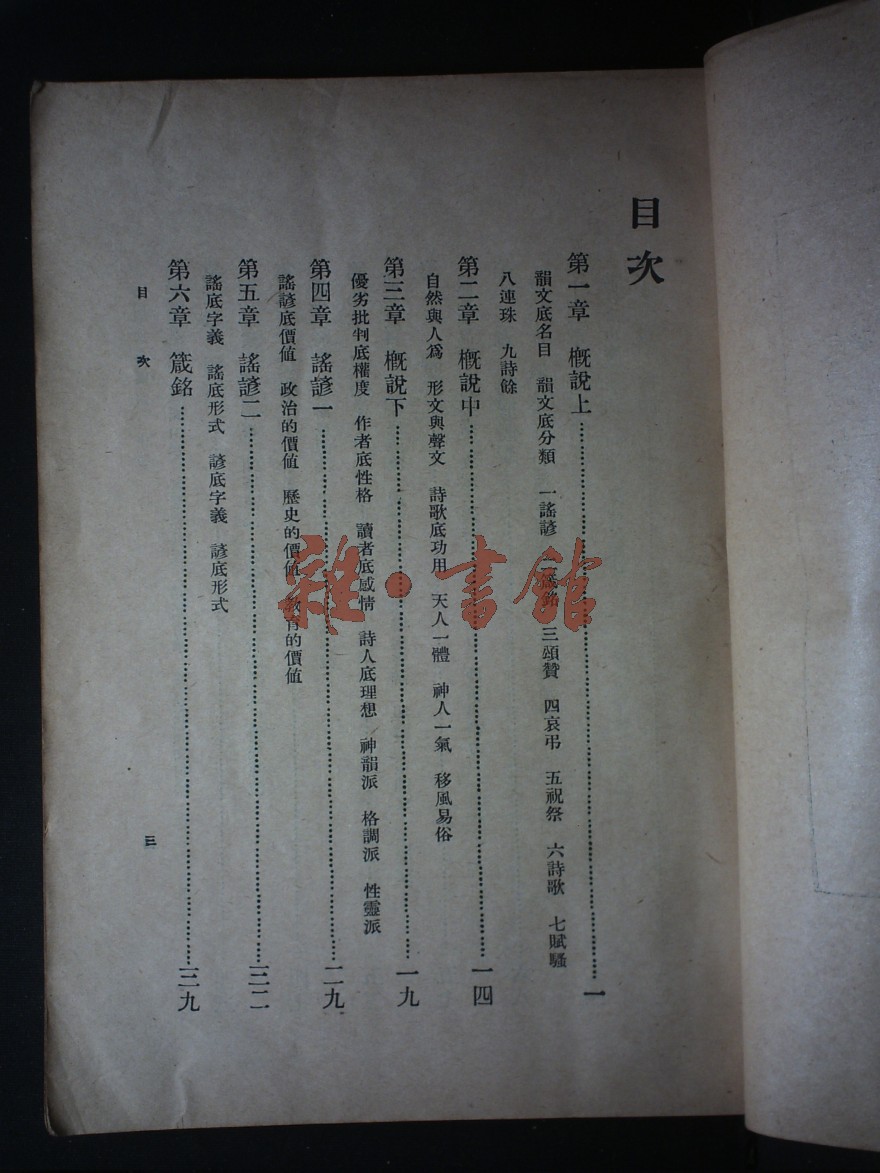 目次
第一章　概說上……一
韻文底名目　韻文底分類　一謠諺　二箴銘　三頌贊　四哀弔　五祝祭　六詩歌　七賦騷
八連珠　九詩餘
第二章　概說中……一四
自然與人爲　形文與聲文　詩歌底功用　天人一體　神人一氣　移風易俗
第三章　概說下……一九
優劣批判底權度　作者底性格　讀者底感情　詩人底理想　神韻派　格調派　性靈派
第四章　謠諺一……二九
謠諺底價値　政治的價値　歷史的價値　教育的價値
第五章　謠諺二……三二
謠底字義　謠底形式　諺底字義　諺底形式
第六章　箴銘……三九
目次
三
雜·書館